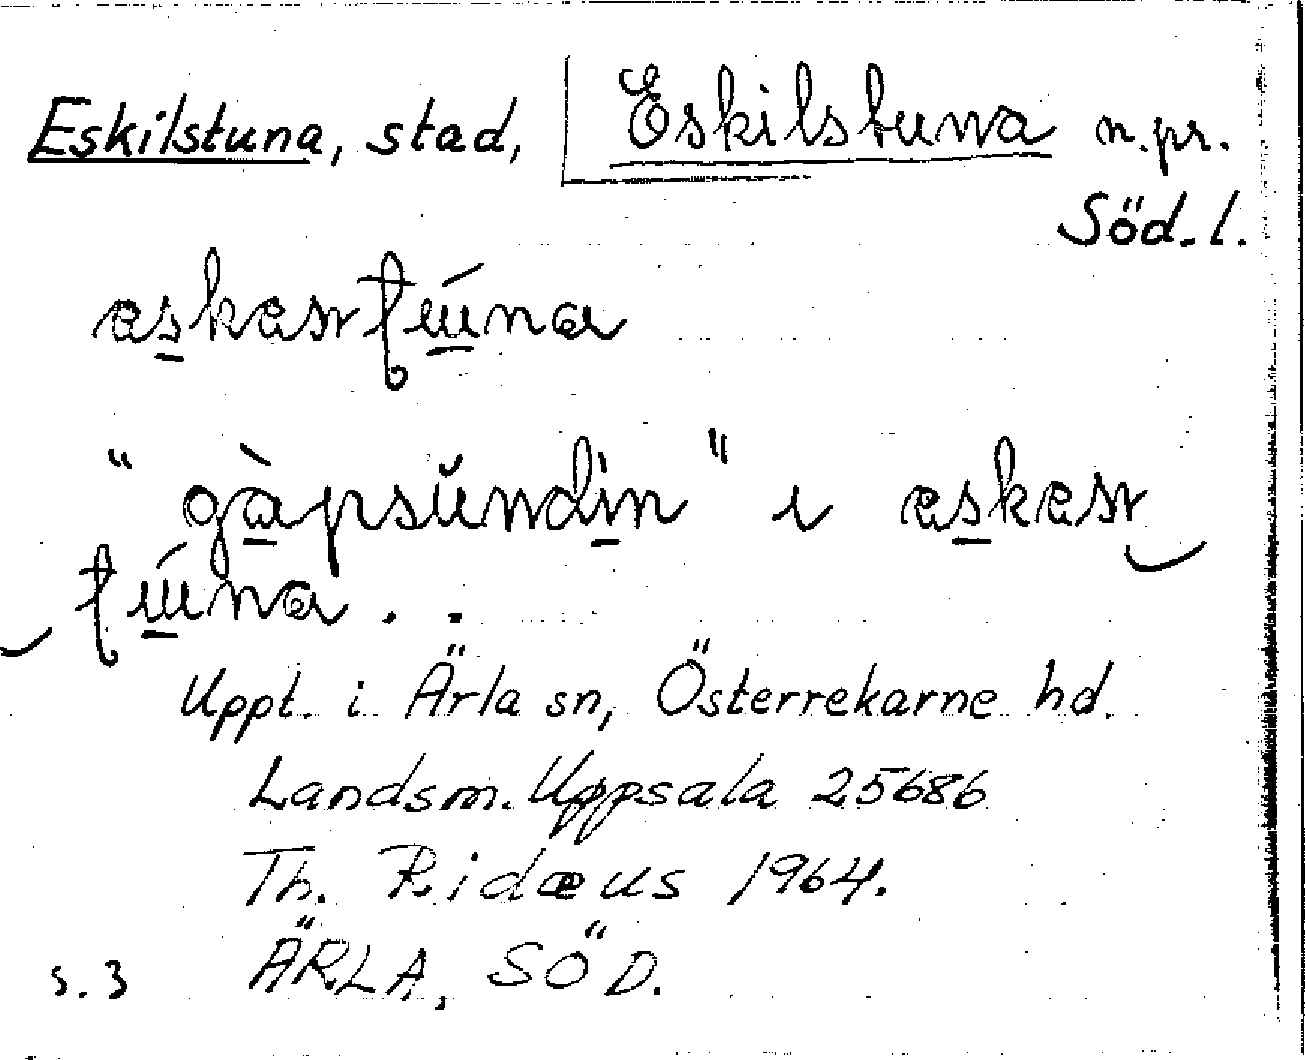 Eskilstuna, stad, Eskilstuna n.pr.
Söd. l.
"gàpsŭndin" i
Uppt. i Ärla sn, Österrekarne hd.
Landsm. Uppsala 25686
Th. Ridæus 1964.
s.3 ÄRLA, SÖD.